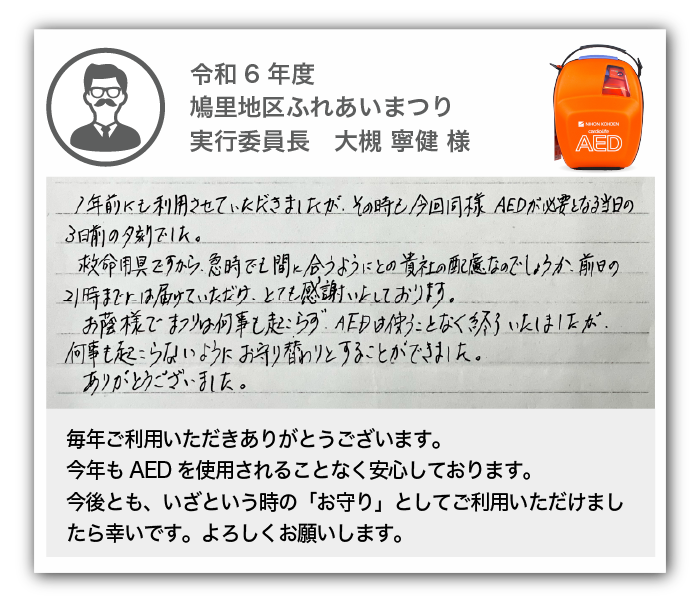 令和6年度
鳩里地区ふれあいまつり
実行委員長　大槻 寧健 様
NIHON KOHDEN
cardiolife
AED
1年前にも利用させていただきましたが、その時も今回同様 AEDが必要となる当日の
3日前の夕刻でした。
救命用具ですから、急時でも間に合うようにとの貴社の配慮なのでしょうか、前日の
21時までには届けていただけ、とても感謝いたしております。
お蔭様でまつりは何事も起こらず、AEDは使うことなく終了いたしましたが、
何事も起こらないようにお守り替わりとすることができました。
ありがとうございました。
毎年ご利用いただきありがとうございます。
今年も AED を使用されることなく安心しております。
今後とも、いざという時の「お守り」としてご利用いただけまし
たら幸いです。よろしくお願いします。